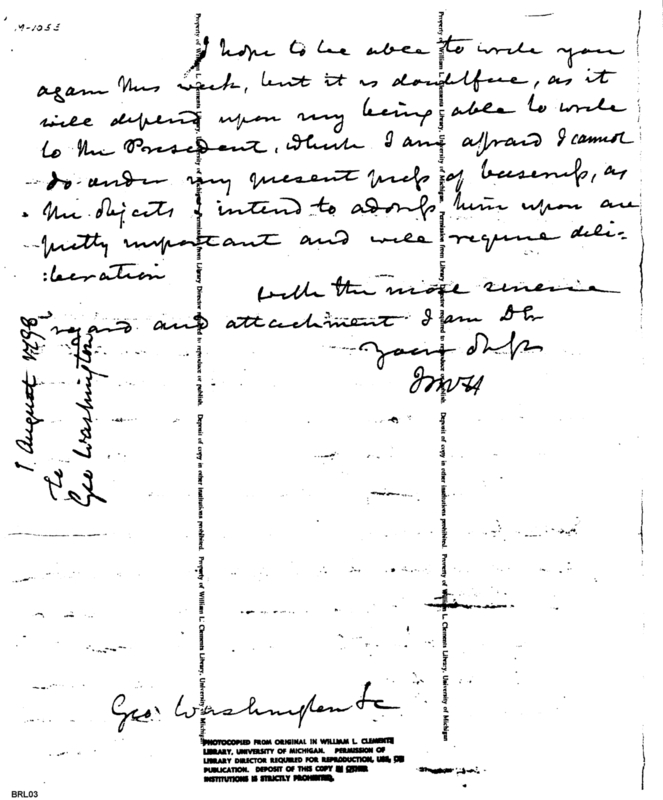 M-1055
I hope to be able to write you
again this week, but it is doubtful, as it
will depend upon my being able to write
to the President, which I am afraid I cannot
do under my present press of business, as
the objects I intend to address him upon are
pretty important and will require deli-
:beration
with the most sincere
regard and attachment I am Dr
Your
JMcH
1 August 1798
To
Geo Washington
Geo: Washington
Property of William L. Clements Library, University of Michigan. Permission from Library Director required to reproduce or publish. Deposit of copy in other institutions prohibited. Property of William L. Clements Library, University of Michigan
Property of William L. Clements Library, University of Michigan. Permission from Library Director required to reproduce or publish. Deposit of copy in other institutions prohibited. Property of William L. Clements Library, University of Michigan
PHOTOCOPIED FROM ORIGINAL IN WILLIAM L. CLEMENTS
LIBRARY, UNIVERSITY OF MICHIGAN. PERMISSION OF
LIBRARY DIRECTOR REQUIRED FOR REPRODUCTION, USE, OR
PUBLICATION. DEPOSIT OF THIS COPY IN OTHER
INSTITUTIONS IS STRICTLY PROHIBITED.
BRL03